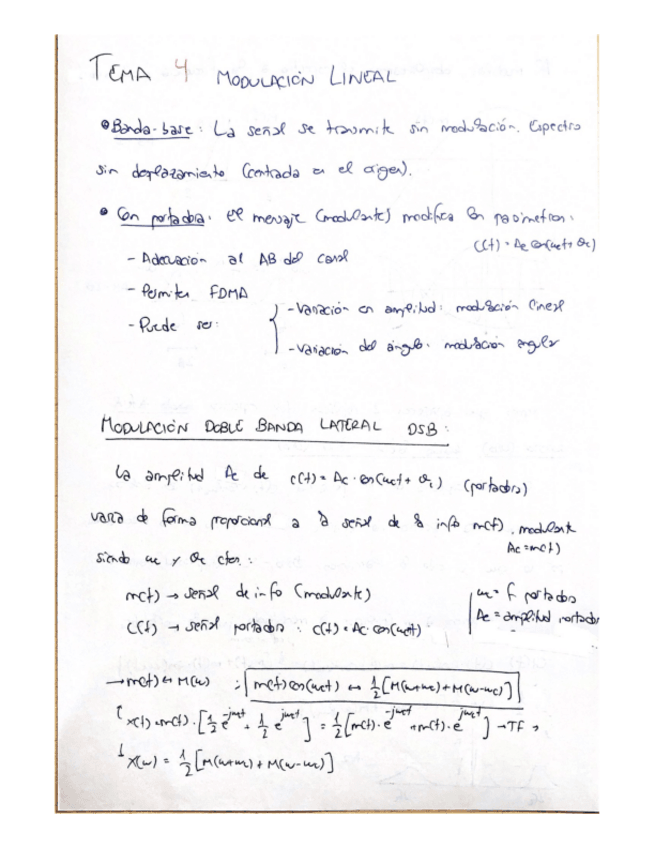 TEMA 4 MODULACIÓN LINEAL
• Banda-base: La señal se transmite sin modulación. Espectro
sin desplazamiento (centrada en el origen).
• Con portadora: el mensaje (modulante) modifica los parámetros:
c(t) = Ac cos(ωct + θc)
- Adecuación al AB del canal
- Permiten FDMA
- Puede ser:
- Variación en amplitud: modulación lineal
- Variación del ángulo: modulación angular
MODULACIÓN DOBLE BANDA LATERAL DSB:
La amplitud Ac de c(t) = Ac·cos(ωct + θc) (portadora)
varía de forma proporcional a la señal de la info m(t), modulante
Ac = m(t)
siendo ωc y θc ctes:
m(t) → señal de info (modulante)
ωc = f portadora
c(t) → señal portadora: c(t) = Ac·cos(ωct)
Ac = amplitud portadora
→ m(t) ↔ M(ω) : m(t)cos(ωct) ↔ 1/2[M(ω+ωc)+M(ω-ωc)]
x(t) = m(t)·[1/2 e^-jωct + 1/2 e^jωct] = 1/2[m(t)·e^-jωct + m(t)·e^jωct] → TF →
X(ω) = 1/2[M(ω+ωc)+M(ω-ωc)]